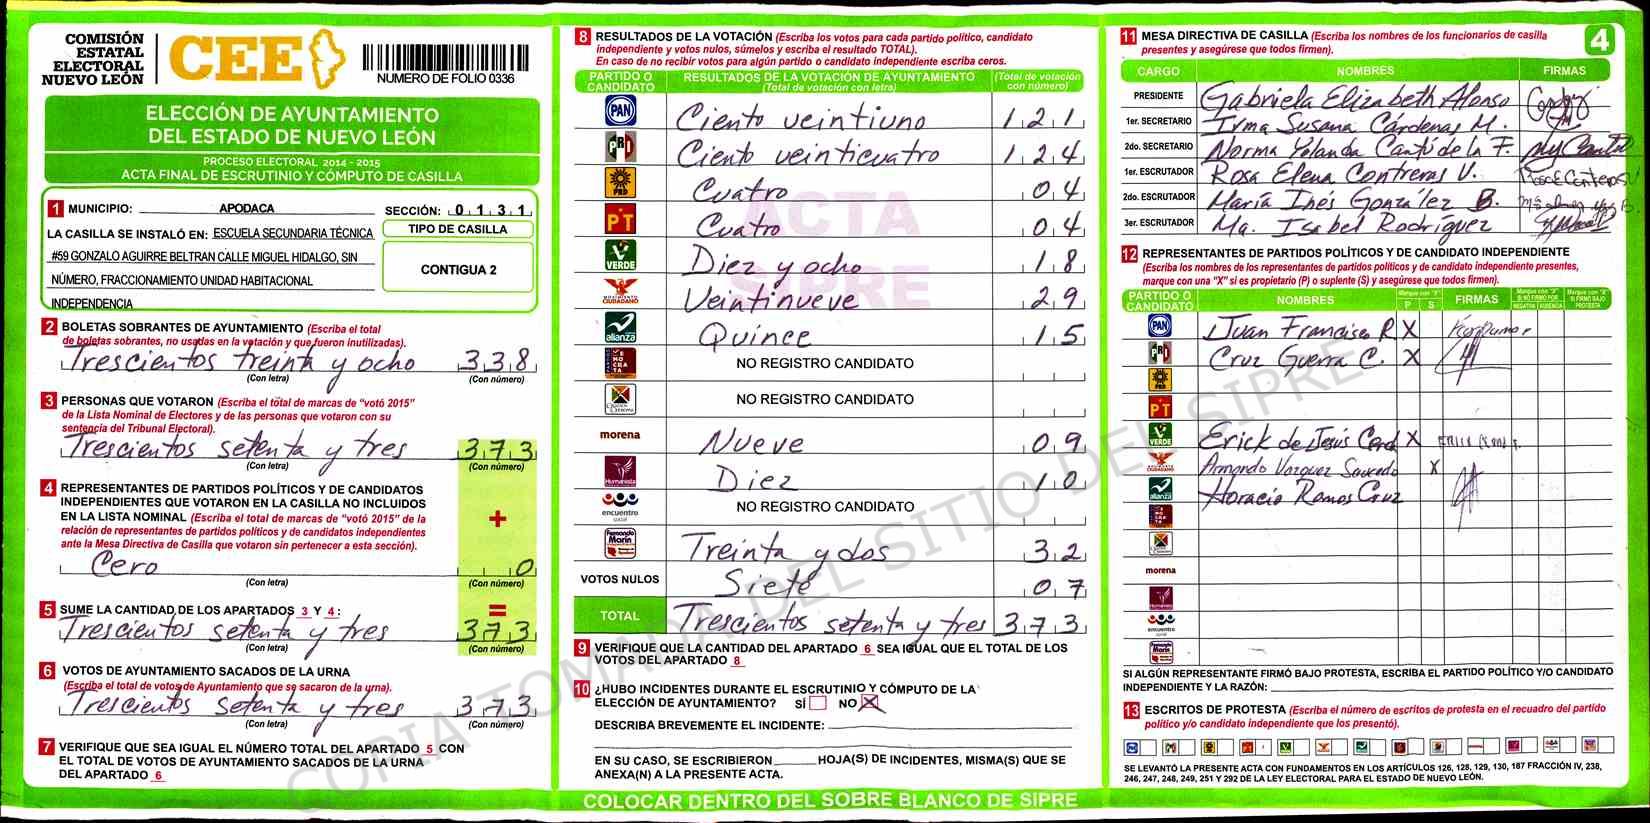 COMISIÓN
ESTATAL
ELECTORAL
NUEVO LEÓN
CEE
NUMERO DE FOLIO 0336
ELECCIÓN DE AYUNTAMIENTO
DEL ESTADO DE NUEVO LEÓN
PROCESO ELECTORAL 2014 - 2015
ACTA FINAL DE ESCRUTINIO Y CÓMPUTO DE CASILLA
1 MUNICIPIO: APODACA SECCIÓN: 0 1 3 1
LA CASILLA SE INSTALÓ EN: ESCUELA SECUNDARIA TÉCNICA
#59 GONZALO AGUIRRE BELTRAN CALLE MIGUEL HIDALGO, SIN
NÚMERO, FRACCIONAMIENTO UNIDAD HABITACIONAL
INDEPENDENCIA
TIPO DE CASILLA
CONTIGUA 2
2 BOLETAS SOBRANTES DE AYUNTAMIENTO (Escriba el total
de boletas sobrantes, no usadas en la votación y que fueron inutilizadas).
Trescientos treinta y ocho 3 3 8
(Con letra) (Con número)
3 PERSONAS QUE VOTARON (Escriba el total de marcas de "votó 2015"
de la Lista Nominal de Electores y de las personas que votaron con su
sentencia del Tribunal Electoral).
Trescientos setenta y tres 3 7 3
(Con letra) (Con número)
4 REPRESENTANTES DE PARTIDOS POLÍTICOS Y DE CANDIDATOS
INDEPENDIENTES QUE VOTARON EN LA CASILLA NO INCLUIDOS
EN LA LISTA NOMINAL (Escriba el total de marcas de "votó 2015" de la
relación de representantes de partidos políticos y de candidatos independientes
ante la Mesa Directiva de Casilla que votaron sin pertenecer a esta sección).
+
Cero 0
(Con letra) (Con número)
5 SUME LA CANTIDAD DE LOS APARTADOS 3 Y 4: =
Trescientos setenta y tres 3 7 3
(Con letra) (Con número)
6 VOTOS DE AYUNTAMIENTO SACADOS DE LA URNA
(Escriba el total de votos de Ayuntamiento que se sacaron de la urna).
Trescientos setenta y tres 3 7 3
(Con letra) (Con número)
7 VERIFIQUE QUE SEA IGUAL EL NÚMERO TOTAL DEL APARTADO 5 CON
EL TOTAL DE VOTOS DE AYUNTAMIENTO SACADOS DE LA URNA
DEL APARTADO 6
8 RESULTADOS DE LA VOTACIÓN (Escriba los votos para cada partido político, candidato
independiente y votos nulos, súmelos y escriba el resultado TOTAL).
En caso de no recibir votos para algún partido o candidato independiente escriba ceros.
PARTIDO O CANDIDATO RESULTADOS DE LA VOTACIÓN DE AYUNTAMIENTO (Total de votación con letra) (Total de votación con número)
PAN Ciento veintiuno 1 2 1
PRI Ciento veinticuatro 1 2 4
PRD Cuatro 0 4
PT Cuatro 0 4
VERDE Diez y ocho 1 8
MOVIMIENTO CIUDADANO Veintinueve 2 9
alianza Quince 1 5
DEMOCRATA NO REGISTRO CANDIDATO
NO REGISTRO CANDIDATO
morena Nueve 0 9
Humanista Diez 1 0
encuentro social NO REGISTRO CANDIDATO
Fernando Marín Treinta y dos 3 2
VOTOS NULOS Siete 0 7
TOTAL Trescientos setenta y tres 3 7 3
ACTA
SIPRE
9 VERIFIQUE QUE LA CANTIDAD DEL APARTADO 6 SEA IGUAL QUE EL TOTAL DE LOS
VOTOS DEL APARTADO 8
10 ¿HUBO INCIDENTES DURANTE EL ESCRUTINIO Y CÓMPUTO DE LA
ELECCIÓN DE AYUNTAMIENTO? SÍ NO X
DESCRIBA BREVEMENTE EL INCIDENTE:
EN SU CASO, SE ESCRIBIERON HOJA(S) DE INCIDENTES, MISMA(S) QUE SE
ANEXA(N) A LA PRESENTE ACTA.
COLOCAR DENTRO DEL SOBRE BLANCO DE SIPRE
11 MESA DIRECTIVA DE CASILLA (Escriba los nombres de los funcionarios de casilla
presentes y asegúrese que todos firmen).
4
CARGO NOMBRES FIRMAS
PRESIDENTE Gabriela Elizabeth Alonso
1er. SECRETARIO Irma Susana Cárdenas M.
2do. SECRETARIO Norma Yolanda Cantú de la F.
1er. ESCRUTADOR Rosa Elena Contreras V.
2do. ESCRUTADOR María Inés González B.
3er. ESCRUTADOR Ma. Isabel Rodríguez
12 REPRESENTANTES DE PARTIDOS POLÍTICOS Y DE CANDIDATO INDEPENDIENTE
(Escriba los nombres de los representantes de partidos políticos y de candidato independiente presentes,
marque con una "X" si es propietario (P) o suplente (S) y asegúrese que todos firmen).
PARTIDO O CANDIDATO NOMBRES Marque con "X" P S FIRMAS Marque con "X" SI NO FIRMÓ POR NEGATIVA AUSENCIA Marque con "X" SI FIRMÓ BAJO PROTESTA
PAN Juan Francisco R X
PRI Cruz Guerra C. X
PRD
PT
VERDE Erick de Jesús Cerd X
CIUDADANO Armando Vazquez Saucedo X
alianza Horacio Ramos Cruz
morena
Humanista
encuentro social
Fernando Marín
SI ALGÚN REPRESENTANTE FIRMÓ BAJO PROTESTA, ESCRIBA EL PARTIDO POLÍTICO Y/O CANDIDATO
INDEPENDIENTE Y LA RAZÓN:
13 ESCRITOS DE PROTESTA (Escriba el número de escritos de protesta en el recuadro del partido
político y/o candidato independiente que los presentó).
SE LEVANTÓ LA PRESENTE ACTA CON FUNDAMENTOS EN LOS ARTÍCULOS 126, 128, 129, 130, 187 FRACCIÓN IV, 238,
246, 247, 248, 249, 251 Y 292 DE LA LEY ELECTORAL PARA EL ESTADO DE NUEVO LEÓN.
COPIA TOMADA DEL SITIO DEL SIPRE